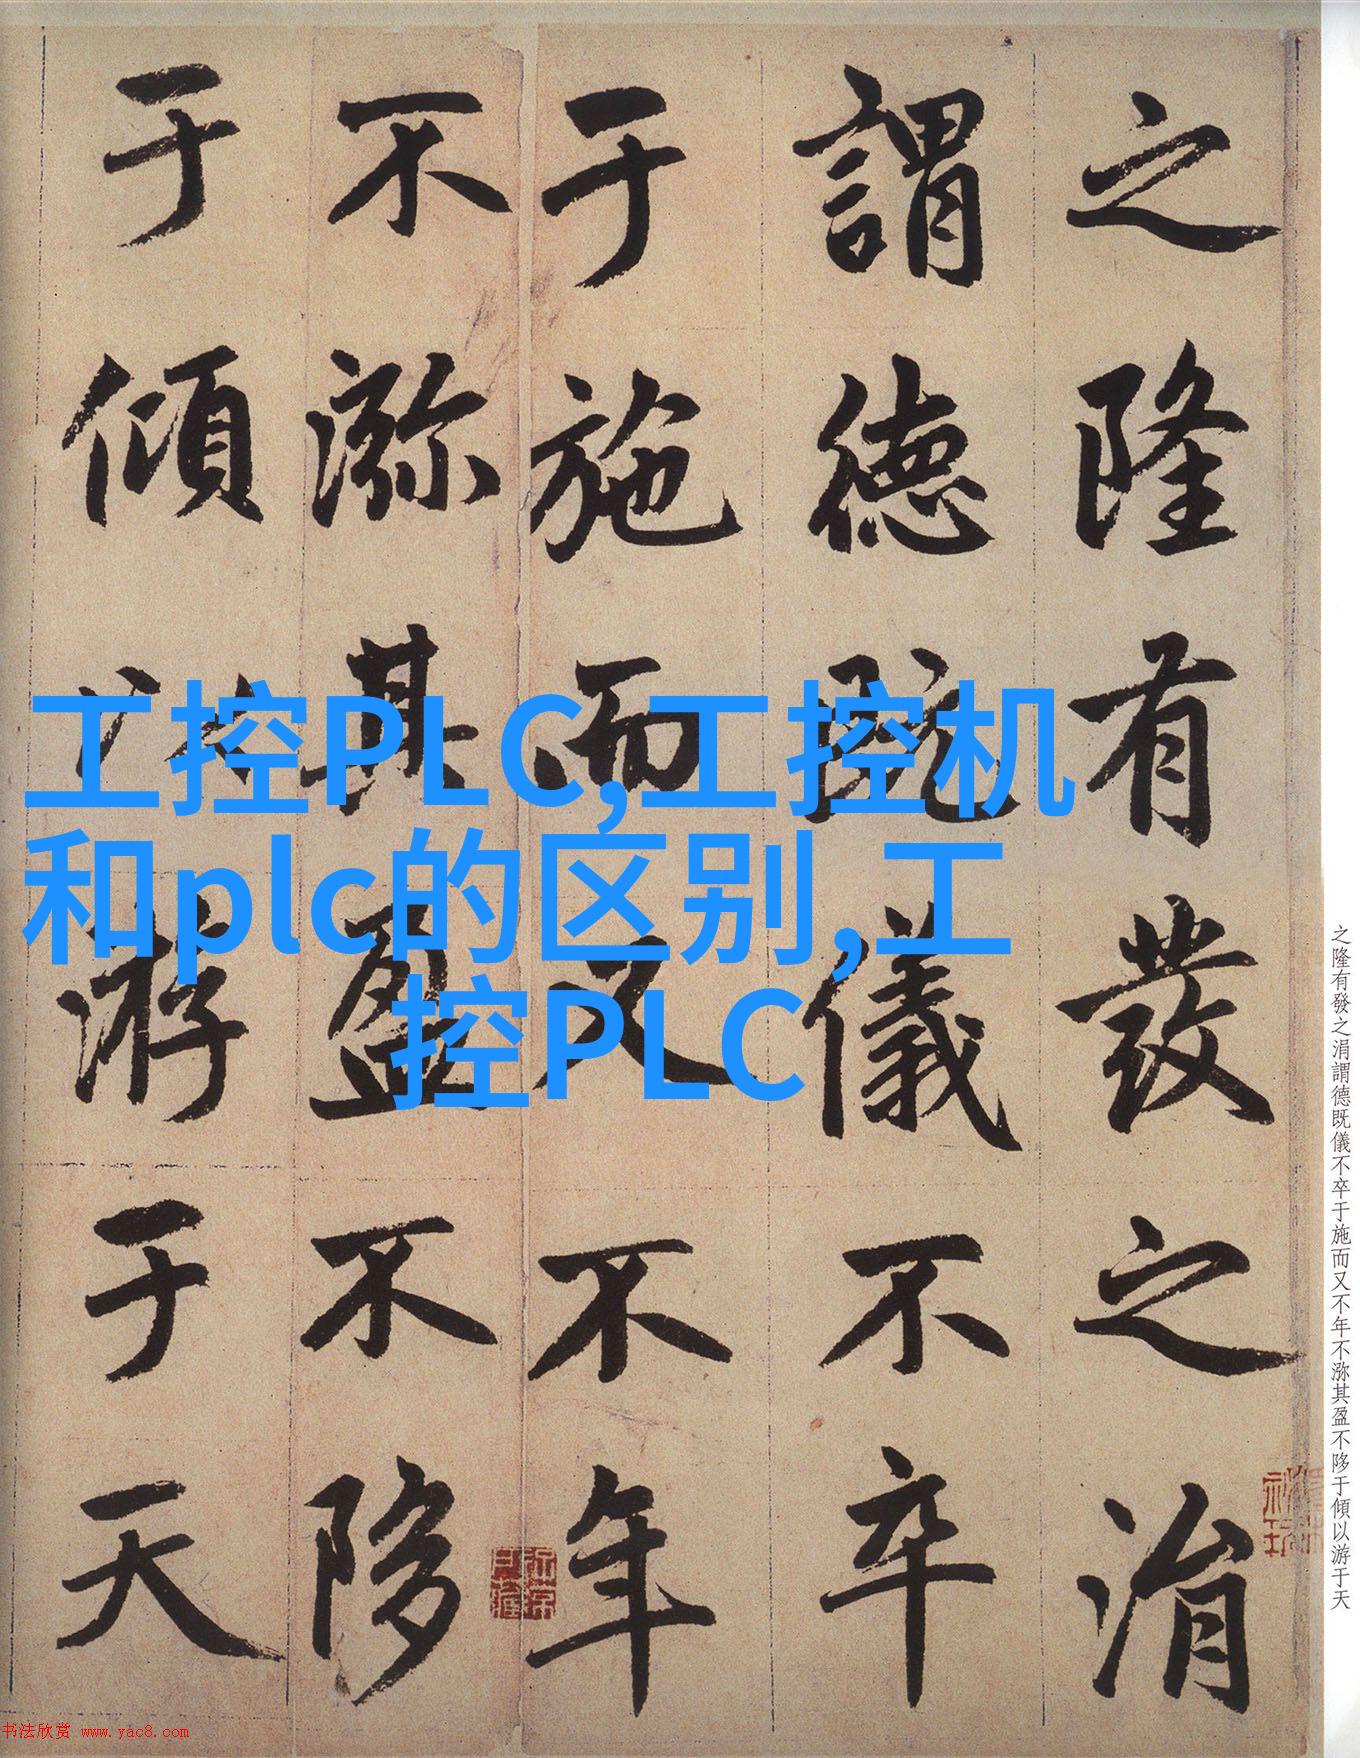 之隆有發之涓
謂德既儀不卒
于施而又不年
不㳽其盈不陊
于傾以游于天
工控PLC,工控机
和plc的区别,工
控PLC
之隆有發之涓謂德既儀不卒于施而又不年不㳽其盈不陊于傾以游于天
书法欣赏 www.yac8.com